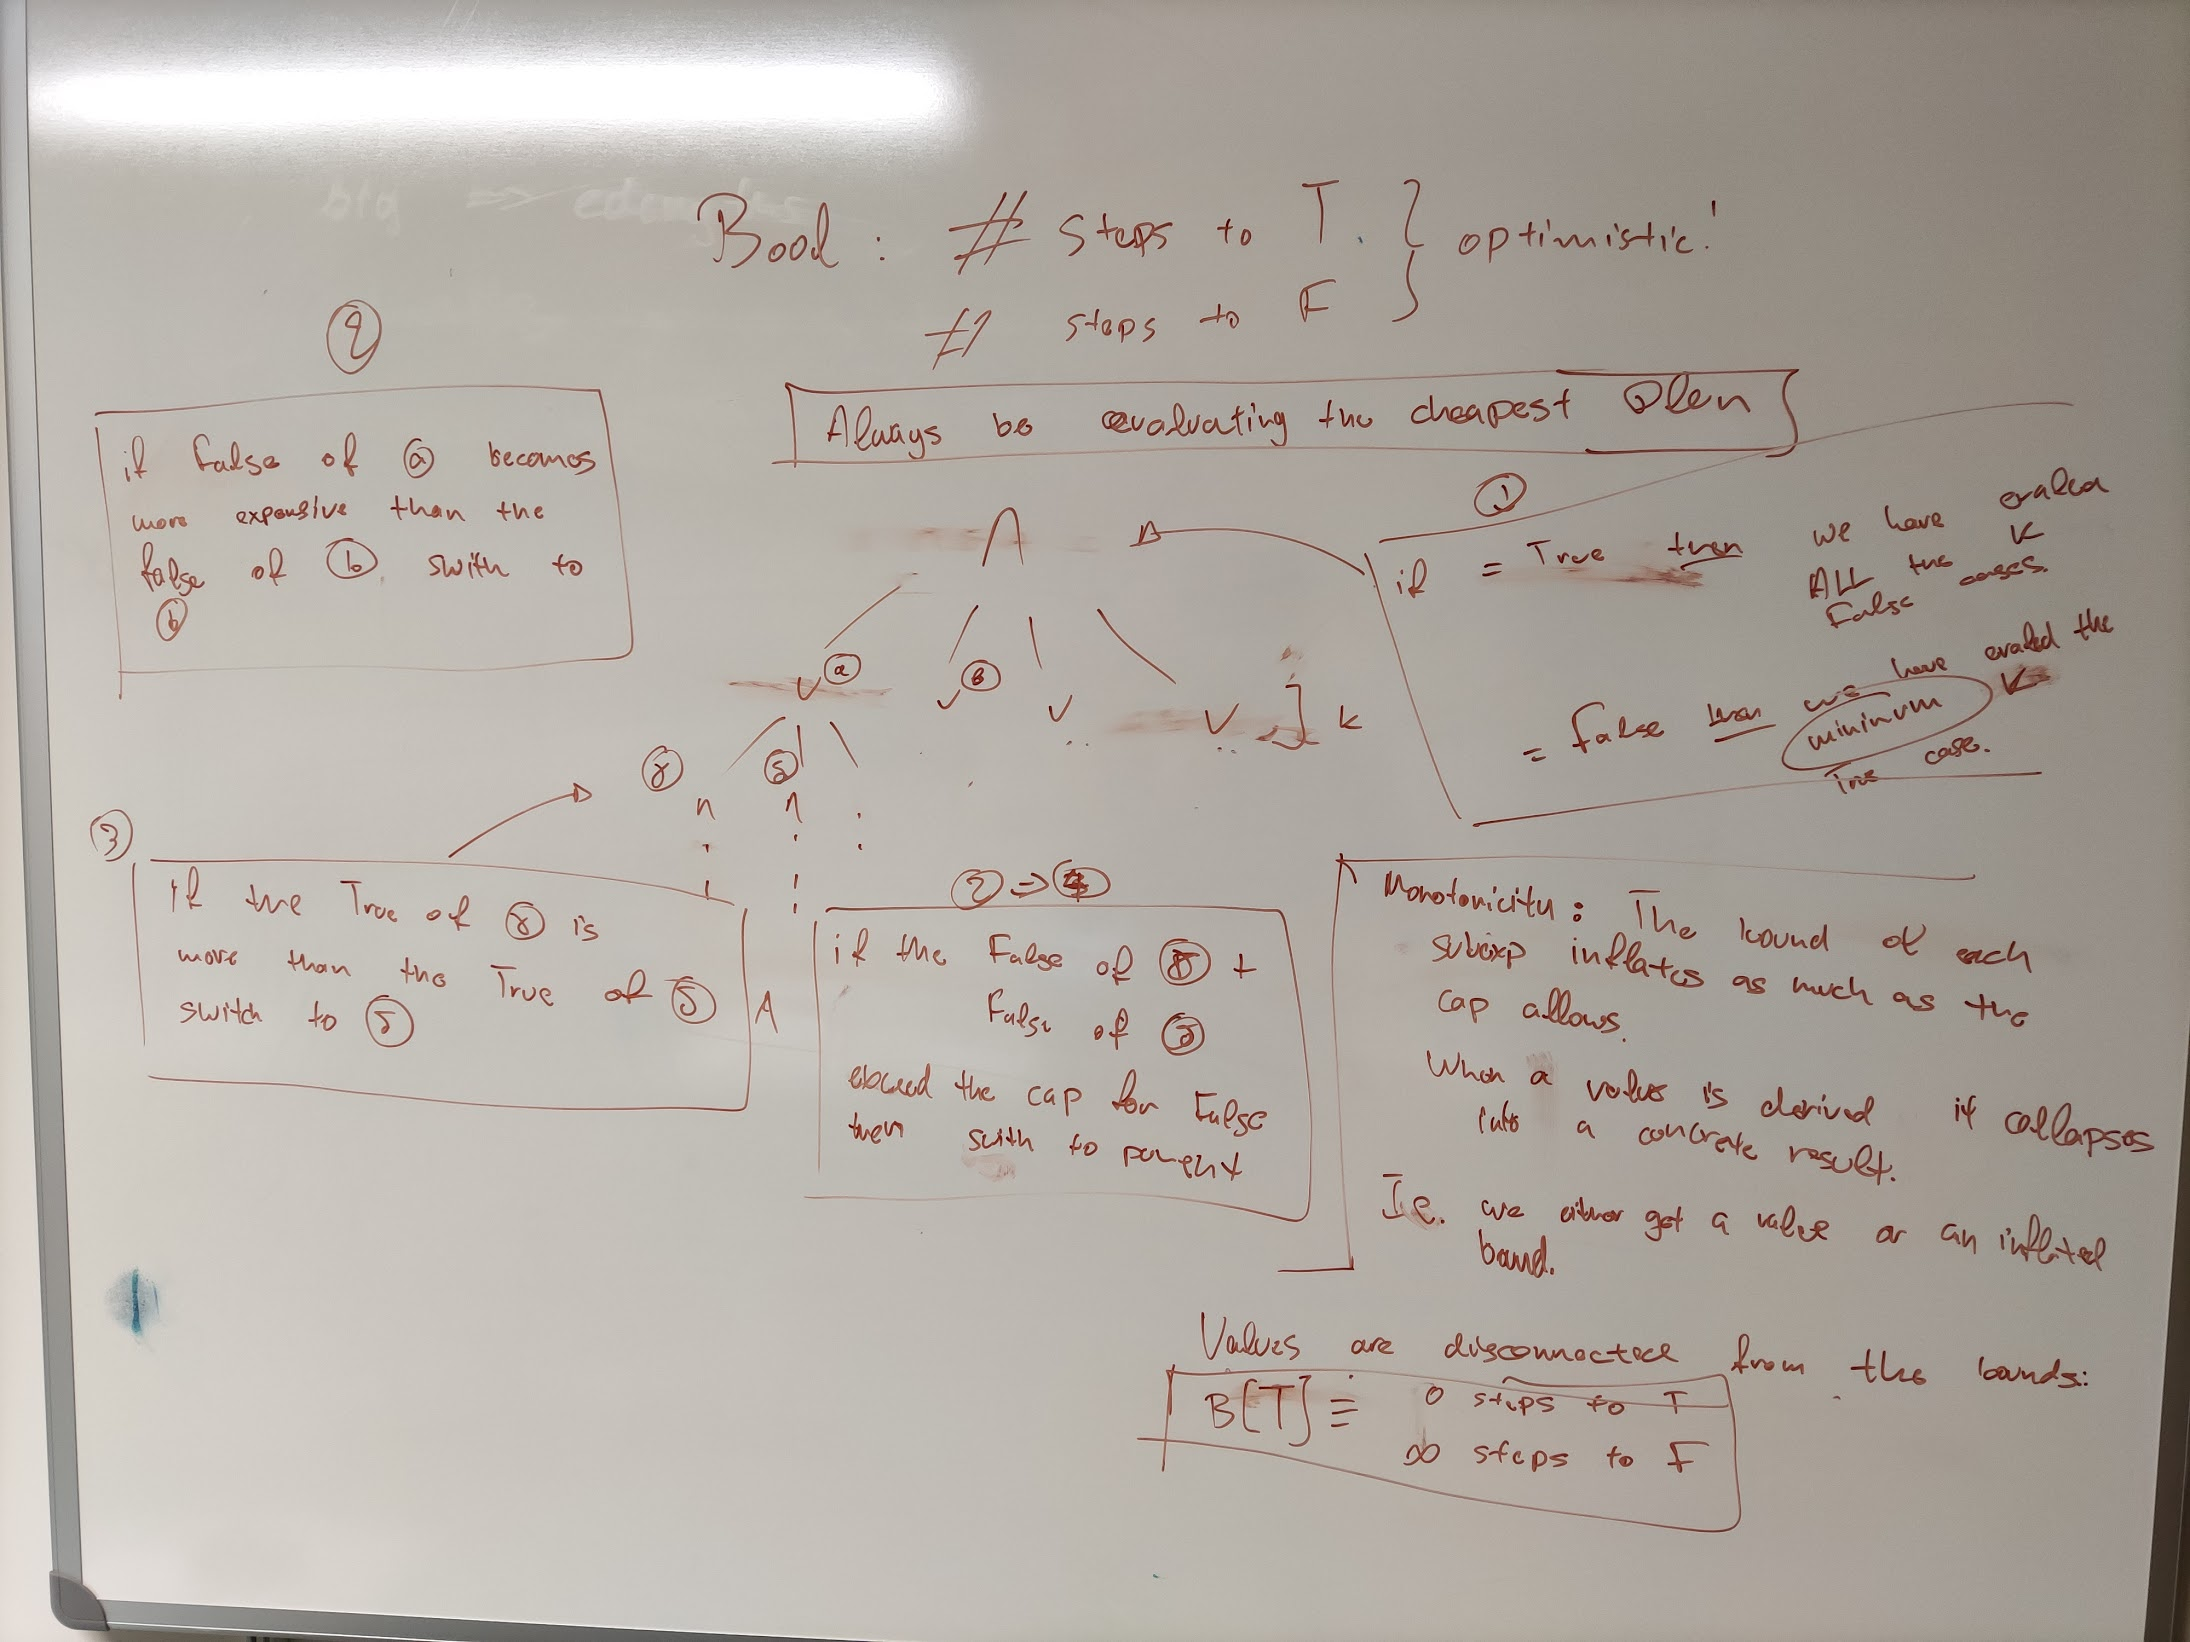 Bool : # steps to T. } optimistic!
# steps to F
Always be evaluating the cheapest
②
if False of ⓐ becomes
more expensive than the
false of ⓑ swith to
ⓑ
①
if = True then we have evaled
ALL the K
False cases.
= False then we have evaled the
minimum K
True case.
∧
∨ ⓐ ∨ ⓑ ∨ ∨ ] k
Ⓨ Ⓢ
∧ ∧
③
if the True of Ⓨ is
more than the True of Ⓢ
switch to Ⓢ
∧
② => ④
if the False of +
False of
exceed the cap for False
then swith to parent
Monotonicity: The bound of each
subexp inflates as much as the
cap allows.
When a value is derived it collapses
into a concrete result.
I.e. we either get a value or an inflated
bound.
Values are disconnected from the bounds:
B[T] ≡ 0 steps to T
∞ steps to F